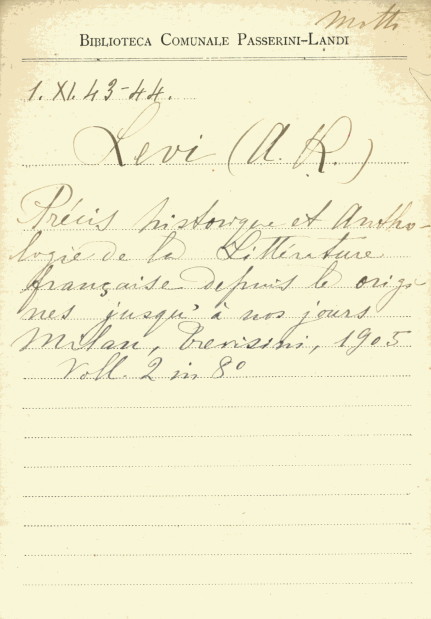 Motti
BIBLIOTECA COMUNALE PASSERINI-LANDI
1. XI. 43-44.
Levi (A. R.)
Précis historique et Antho-
logie de la Littérature
française depuis le origi
nes jusqu'à nos jours
Milan, Trevisini, 1905
Voll. 2 in 8°